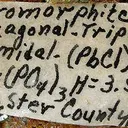 romorphite
agonal-Trip
midal-(PbCl)
(PO4)3 H=3.5
ster County